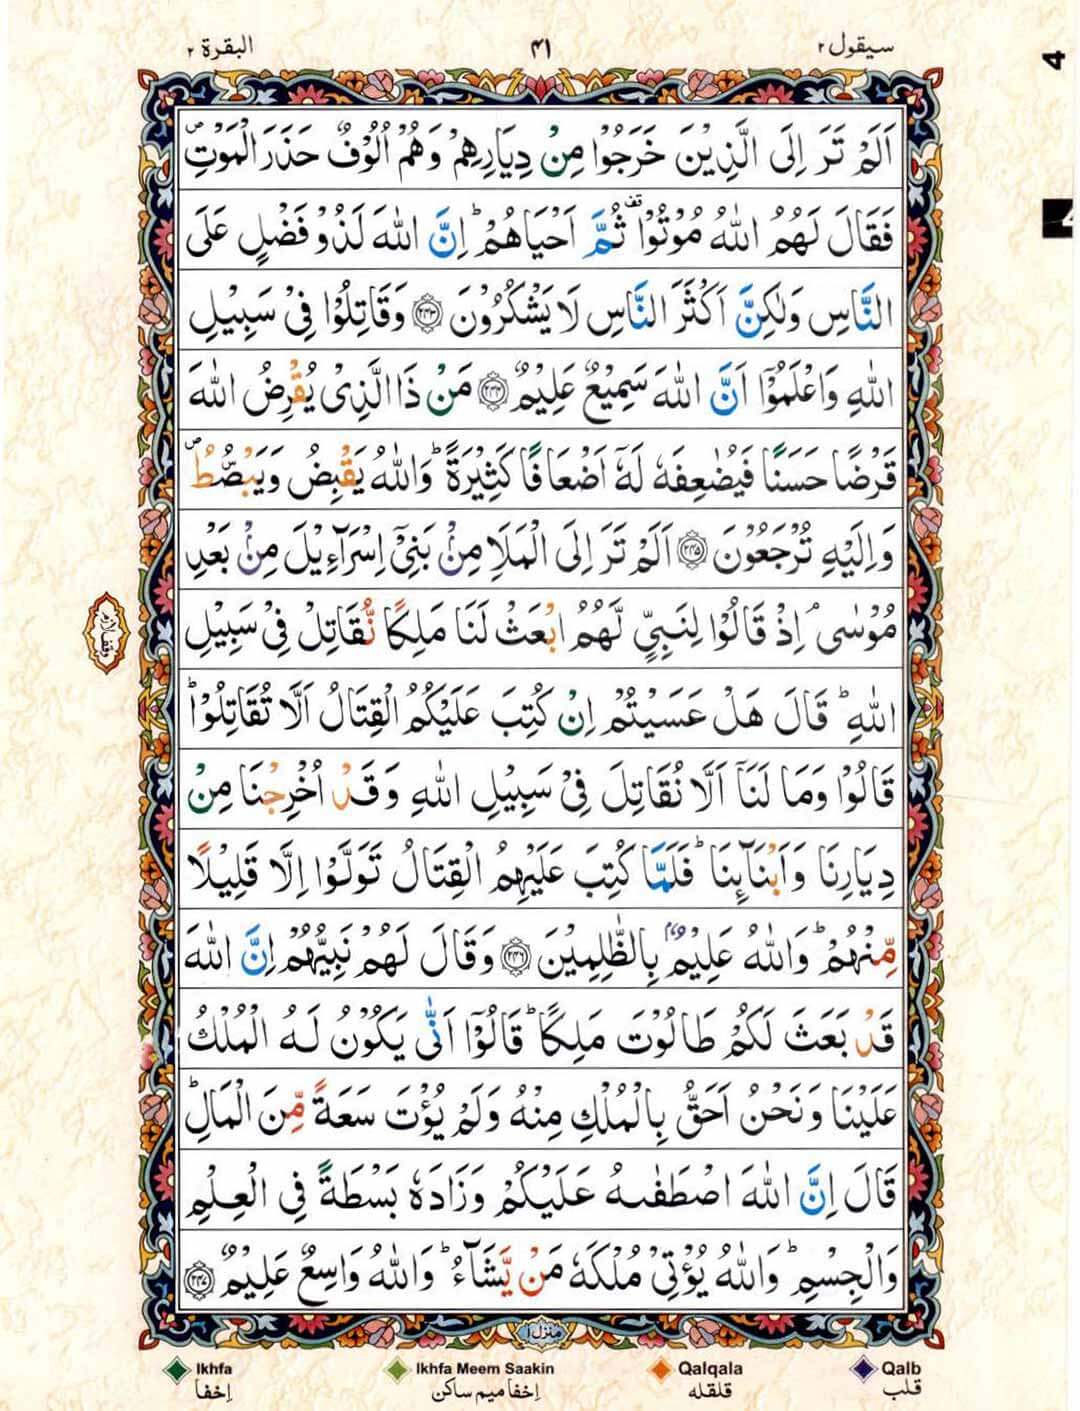 سيقول ٢
٤١
البقرة ٢
4
اَلَمْ تَرَ اِلَى الَّذِيْنَ خَرَجُوْا مِنْ دِيَارِهِمْ وَهُمْ اُلُوْفٌ حَذَرَ الْمَوْتِ ۪
فَقَالَ لَهُمُ اللّٰهُ مُوْتُوْا ۫ ثُمَّ اَحْيَاهُمْ ؕ اِنَّ اللّٰهَ لَذُوْ فَضْلٍ عَلَى
النَّاسِ وَلٰكِنَّ اَكْثَرَ النَّاسِ لَا يَشْكُرُوْنَ ﴿٢٤٣﴾ وَقَاتِلُوْا فِيْ سَبِيْلِ
اللّٰهِ وَاعْلَمُوْۤا اَنَّ اللّٰهَ سَمِيْعٌ عَلِيْمٌ ﴿٢٤٤﴾ مَنْ ذَا الَّذِيْ يُقْرِضُ اللّٰهَ
قَرْضًا حَسَنًا فَيُضٰعِفَهٗ لَهٗۤ اَضْعَافًا كَثِيْرَةً ؕ وَاللّٰهُ يَقْبِضُ وَيَبْصُۜطُ ۪
وَاِلَيْهِ تُرْجَعُوْنَ ﴿٢٤٥﴾ اَلَمْ تَرَ اِلَى الْمَلَاِ مِنْۢ بَنِيْۤ اِسْرَآءِيْلَ مِنْۢ بَعْدِ
مُوْسٰى ۘ اِذْ قَالُوْا لِنَبِيٍّ لَّهُمُ ابْعَثْ لَنَا مَلِكًا نُّقَاتِلْ فِيْ سَبِيْلِ
وقف لازم
اللّٰهِ ؕ قَالَ هَلْ عَسَيْتُمْ اِنْ كُتِبَ عَلَيْكُمُ الْقِتَالُ اَلَّا تُقَاتِلُوْا ؕ
قَالُوْا وَمَا لَنَاۤ اَلَّا نُقَاتِلَ فِيْ سَبِيْلِ اللّٰهِ وَقَدْ اُخْرِجْنَا مِنْ
دِيَارِنَا وَاَبْنَآئِنَا ؕ فَلَمَّا كُتِبَ عَلَيْهِمُ الْقِتَالُ تَوَلَّوْا اِلَّا قَلِيْلًا
مِّنْهُمْ ؕ وَاللّٰهُ عَلِيْمٌۢ بِالظّٰلِمِيْنَ ﴿٢٤٦﴾ وَقَالَ لَهُمْ نَبِيُّهُمْ اِنَّ اللّٰهَ
قَدْ بَعَثَ لَكُمْ طَالُوْتَ مَلِكًا ؕ قَالُوْۤا اَنّٰى يَكُوْنُ لَهُ الْمُلْكُ
عَلَيْنَا وَنَحْنُ اَحَقُّ بِالْمُلْكِ مِنْهُ وَلَمْ يُؤْتَ سَعَةً مِّنَ الْمَالِ ؕ
قَالَ اِنَّ اللّٰهَ اصْطَفٰىهُ عَلَيْكُمْ وَزَادَهٗ بَسْطَةً فِي الْعِلْمِ
وَالْجِسْمِ ؕ وَاللّٰهُ يُؤْتِيْ مُلْكَهٗ مَنْ يَّشَآءُ ؕ وَاللّٰهُ وَاسِعٌ عَلِيْمٌ ﴿٢٤٧﴾
منزل ١
Ikhfa Ikhfa Meem Saakin Qalqala Qalb
اِخفا اِخفا ميم ساكن قلقله قلب